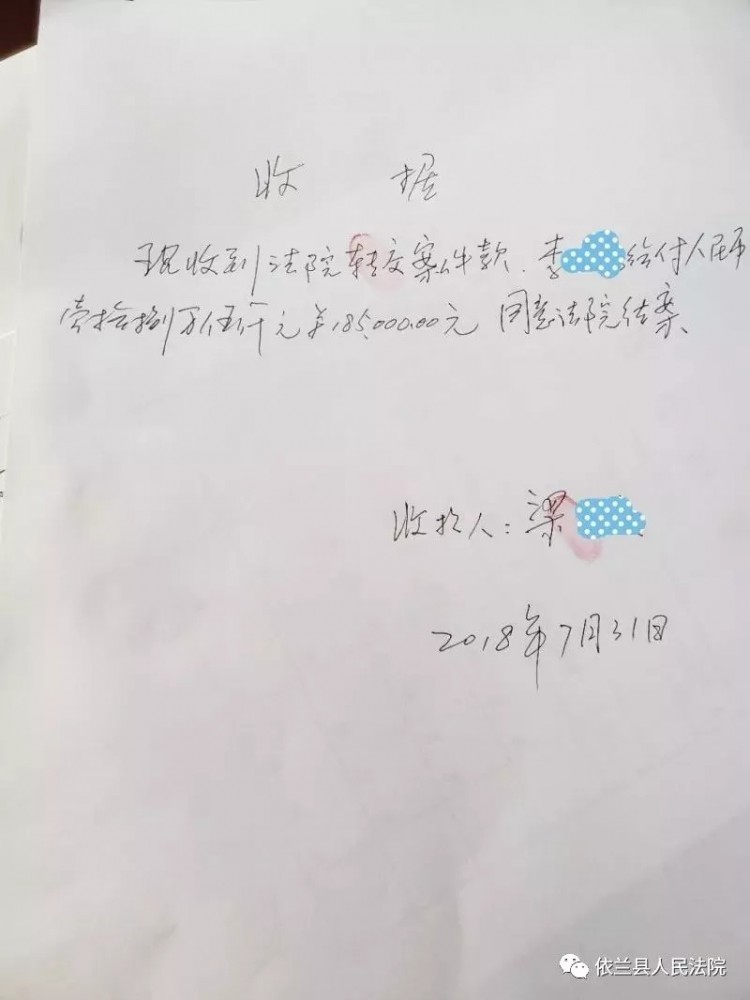 收 据
现收到法院转交案件款.李 给付人民币
壹拾捌万伍仟元¥185,000.00元 同意法院结案
收款人:梁
2018年7月31日
依兰县人民法院